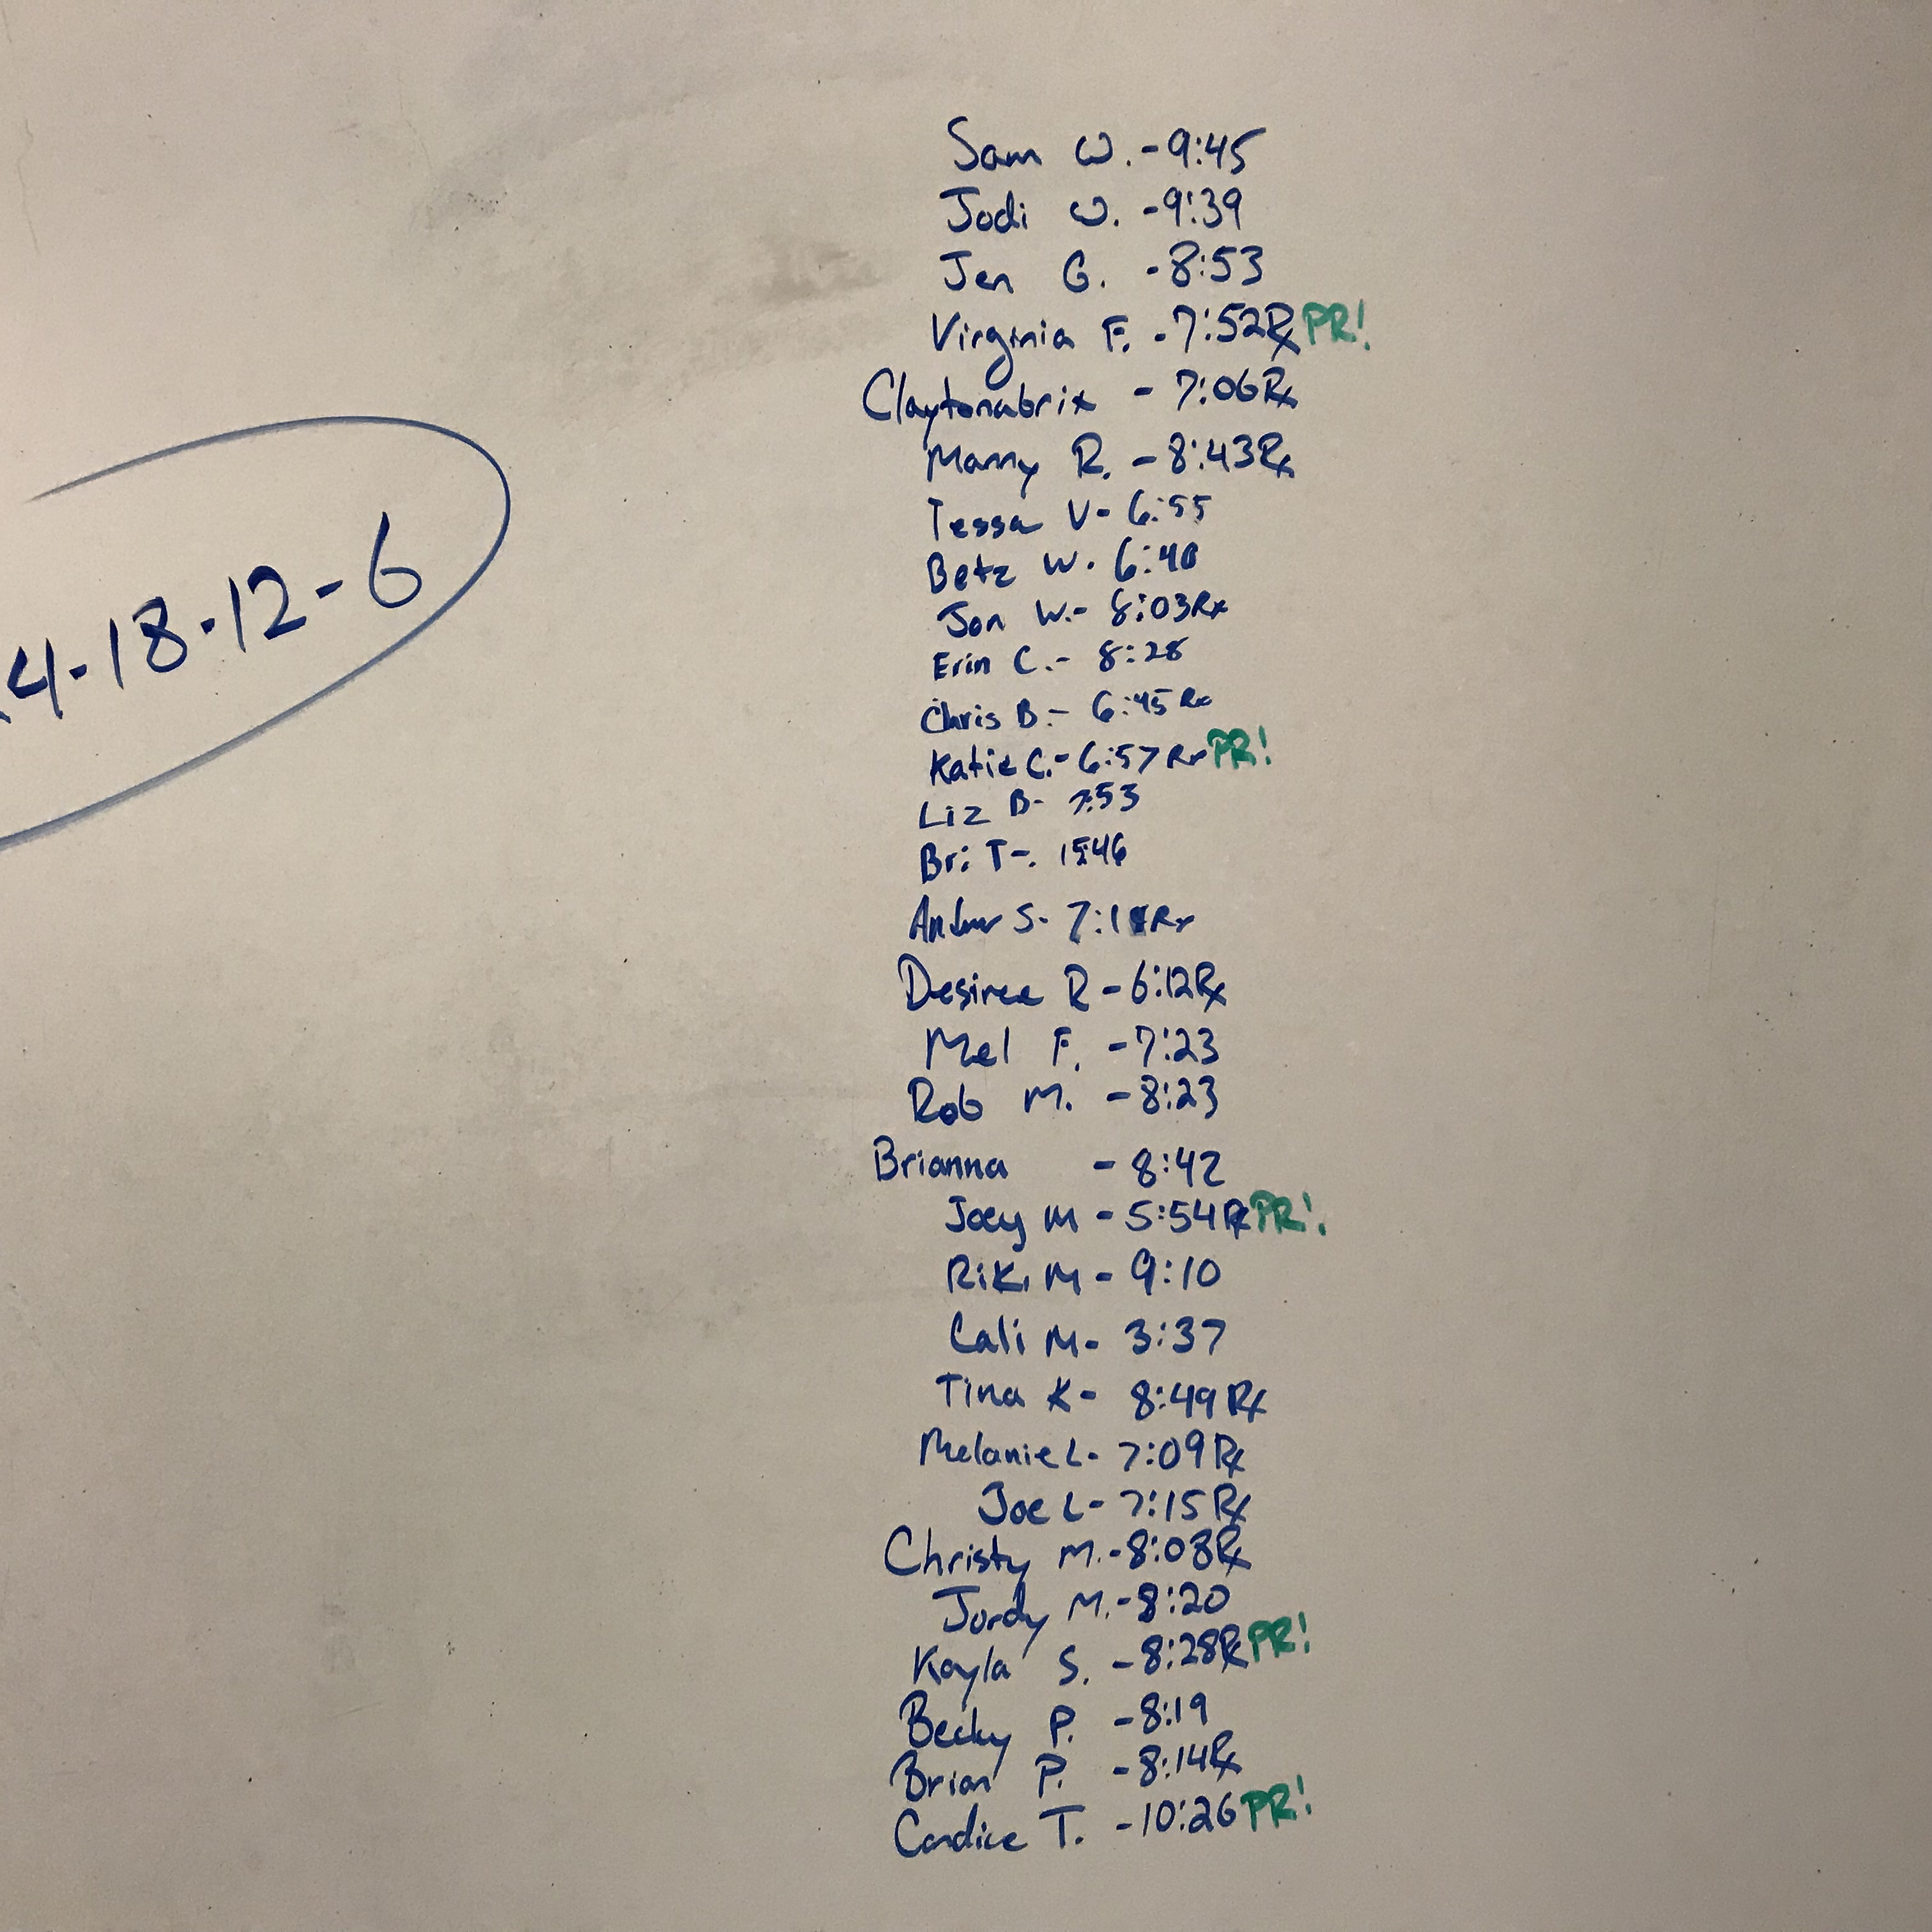 4-18-12-6
Sam W. - 9:45
Jodi W. - 9:39
Jen G. - 8:53
Virginia F. - 7:52Rx PR!
Claytonabrix - 7:06Rx
Manny R. - 8:43Rx
Tessa V- 6:55
Betz W. 6:40
Jon W.- 8:03Rx
Erin C.- 8:28
Chris B.- 6:45 Rx
Katie C.- 6:57 Rx PR!
Liz B- 7:53
Bri T-. 15:46
S- Rx
Desiree R - 6:12Rx
Mel F. - 7:23
Rob M. - 8:23
Brianna - 8:42
Joey M - 5:54Rx PR!
Riki M - 9:10
Cali M- 3:37
Tina K- 8:49 Rx
Melanie L- 7:09 Rx
Joe L- 7:15 Rx
Christy M.- 8:08Rx
Jordy M.- 8:20
Kayla S. - 8:28Rx PR!
Becky P. - 8:19
Brian P. - 8:14Rx
Candice T. - 10:26 PR!